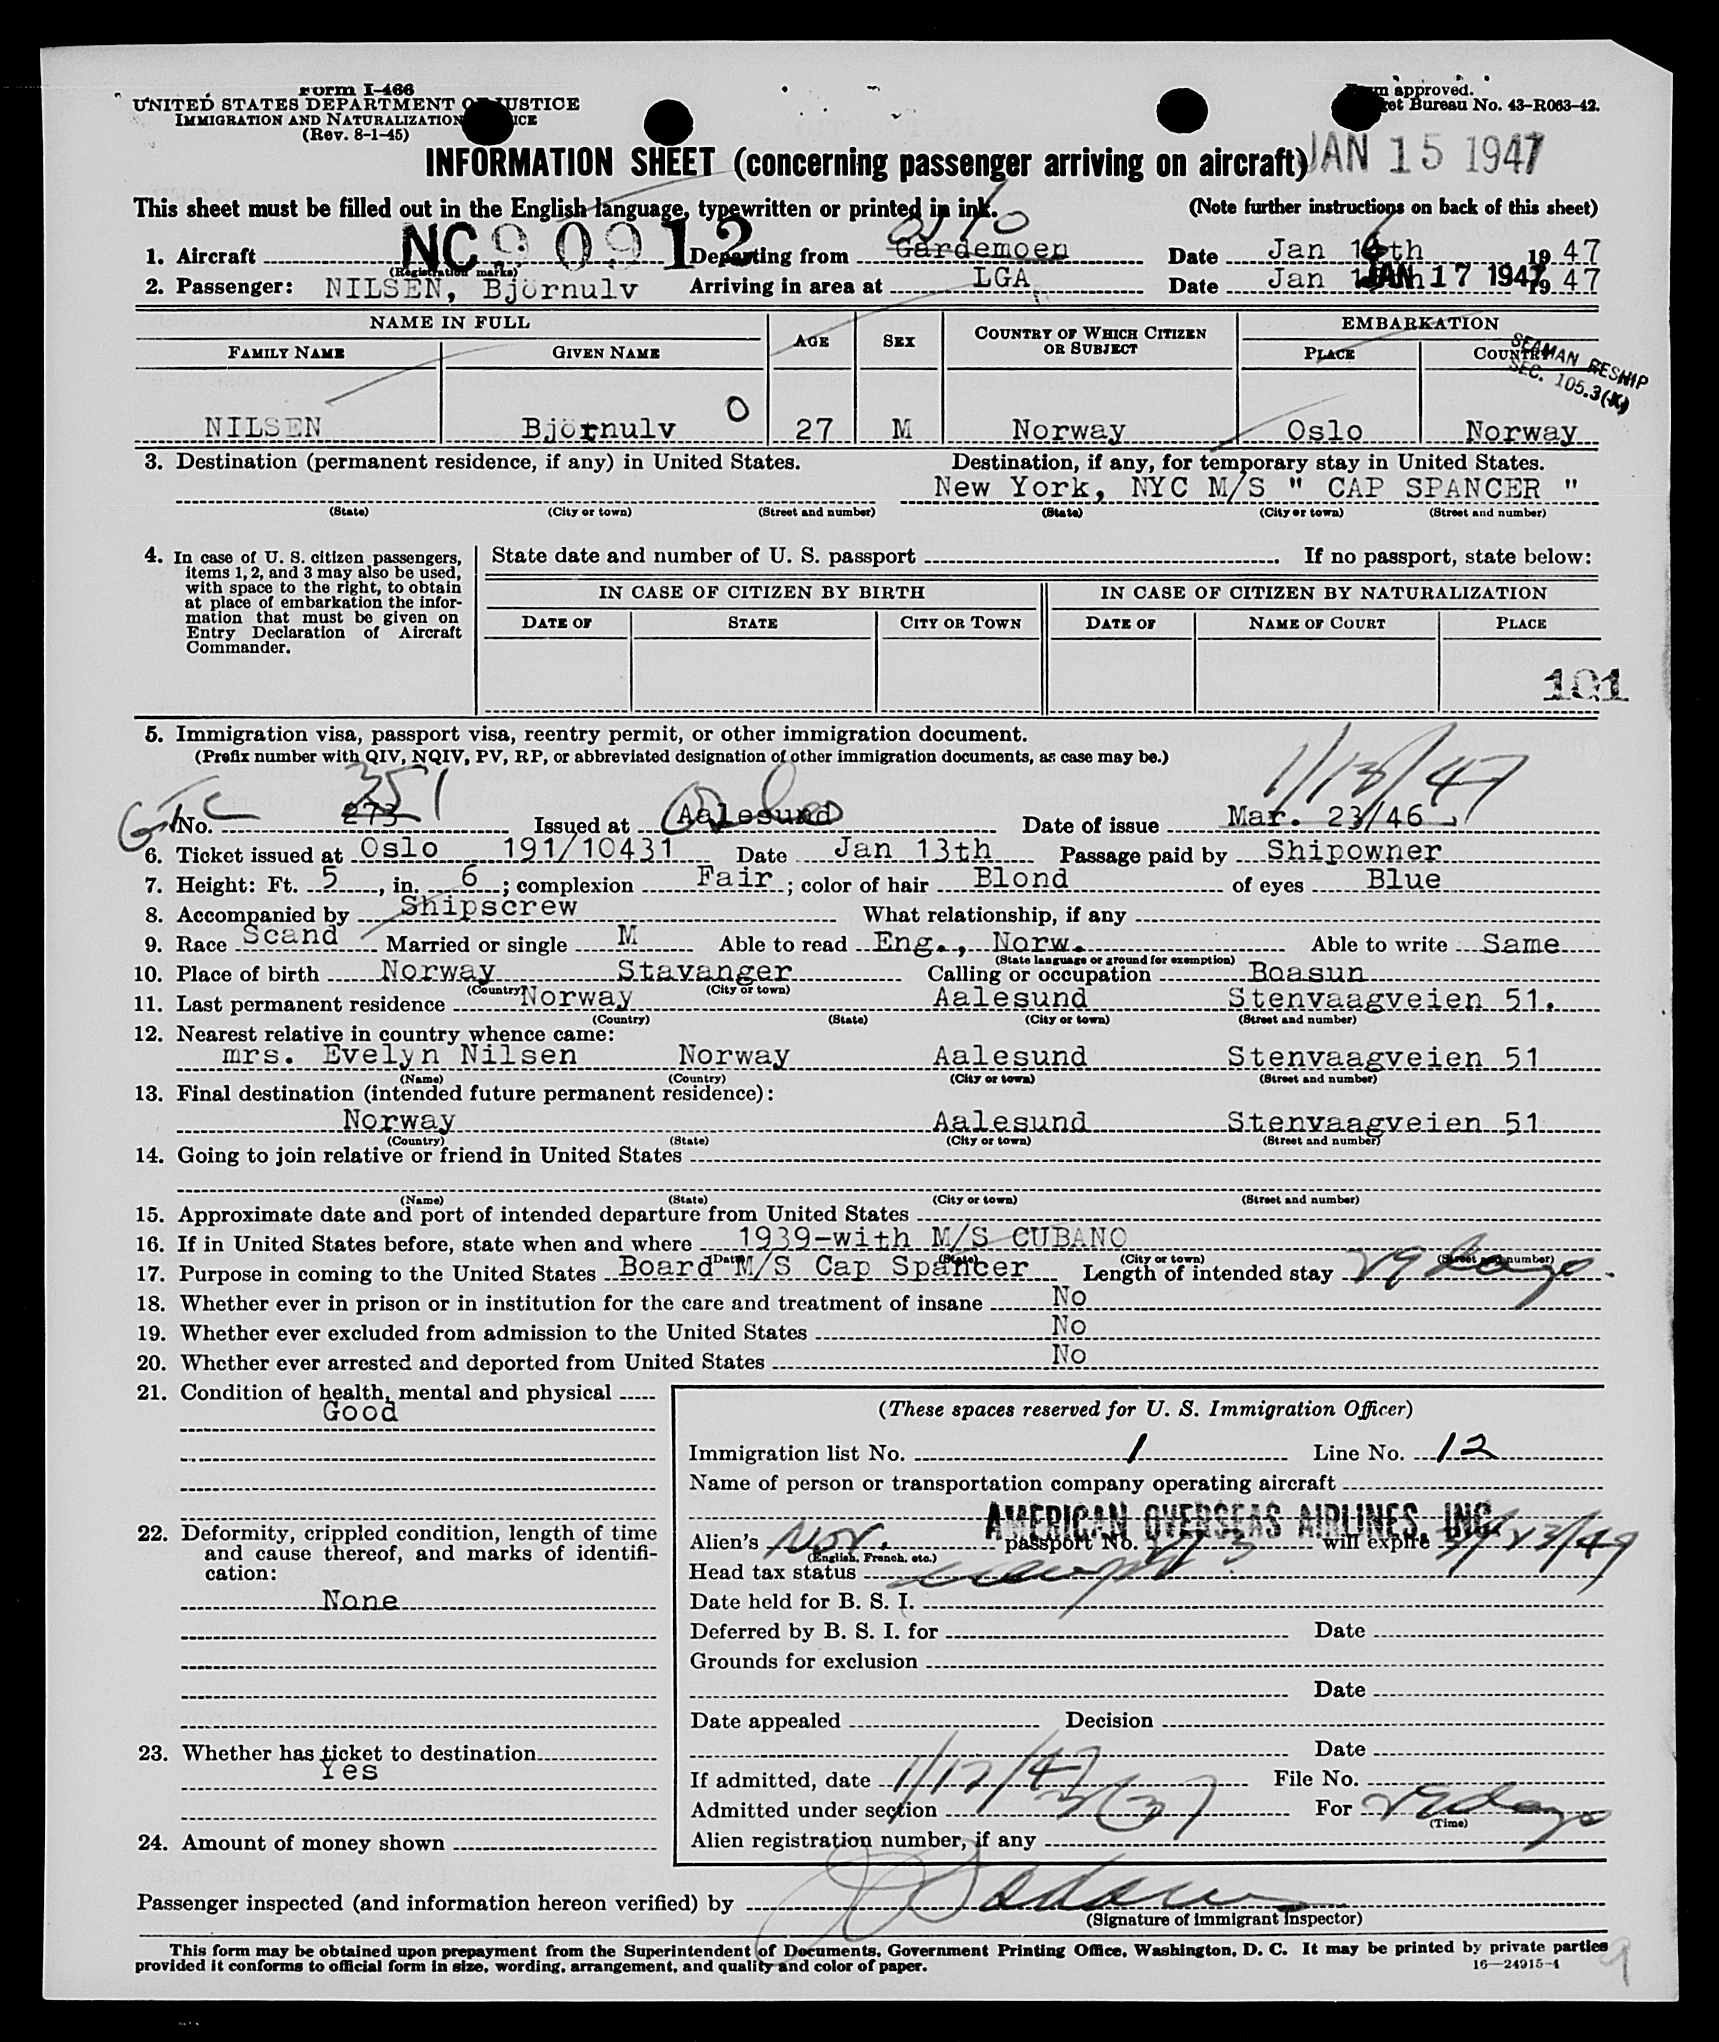 Form I-466
UNITED STATES DEPARTMENT OF JUSTICE
IMMIGRATION AND NATURALIZATION SERVICE
(Rev. 8-1-45)
Form approved.
Budget Bureau No. 43-R063-42.
INFORMATION SHEET (concerning passenger arriving on aircraft) JAN 15 1947
This sheet must be filled out in the English language, typewritten or printed in ink. (Note further instructions on back of this sheet)
Oslo
1. Aircraft NC 90912 Departing from Gardemoen Date Jan 16th 19 47
(Registration marks)
2. Passenger: NILSEN, Björnulv Arriving in area at LGA Date Jan JAN 17 1947 19 47
NAME IN FULL AGE SEX COUNTRY OF WHICH CITIZEN OR SUBJECT EMBARKATION
FAMILY NAME GIVEN NAME PLACE COUNTRY
SEAMAN RESHIP
SEC. 105.3(K)
NILSEN Björnulv O 27 M Norway Oslo Norway
3. Destination (permanent residence, if any) in United States. Destination, if any, for temporary stay in United States.
New York, NYC M/S " CAP SPANCER "
(State) (City or town) (Street and number) (State) (City or town) (Street and number)
4. In case of U. S. citizen passengers, items 1, 2, and 3 may also be used, with space to the right, to obtain at place of embarkation the information that must be given on Entry Declaration of Aircraft Commander.
State date and number of U. S. passport . If no passport, state below:
IN CASE OF CITIZEN BY BIRTH IN CASE OF CITIZEN BY NATURALIZATION
DATE OF STATE CITY OR TOWN DATE OF NAME OF COURT PLACE
101
5. Immigration visa, passport visa, reentry permit, or other immigration document.
(Prefix number with QIV, NQIV, PV, RP, or abbreviated designation of other immigration documents, as case may be.)
351 Oslo 1/13/47
No. 273 Issued at Aalesund Date of issue Mar. 23/46
6. Ticket issued at Oslo 191/10431 Date Jan 13th Passage paid by Shipowner
7. Height: Ft. 5, in. 6; complexion Fair; color of hair Blond of eyes Blue
8. Accompanied by Shipscrew What relationship, if any
9. Race Scand Married or single M Able to read Eng., Norw. Able to write Same
(State language or ground for exemption)
10. Place of birth Norway Stavanger Calling or occupation Boasun
(Country) (City or town)
11. Last permanent residence Norway Aalesund Stenvaagveien 51.
(Country) (State) (City or town) (Street and number)
12. Nearest relative in country whence came:
mrs. Evelyn Nilsen Norway Aalesund Stenvaagveien 51
(Name) (Country) (City or town) (Street and number)
13. Final destination (intended future permanent residence):
Norway Aalesund Stenvaagveien 51
(Country) (State) (City or town) (Street and number)
14. Going to join relative or friend in United States
(Name) (State) (City or town) (Street and number)
15. Approximate date and port of intended departure from United States
16. If in United States before, state when and where 1939-with M/S CUBANO
(Date) (State) (City or town) (Street and number)
17. Purpose in coming to the United States Board M/S Cap Spancer Length of intended stay 29 days
18. Whether ever in prison or in institution for the care and treatment of insane No
19. Whether ever excluded from admission to the United States No
20. Whether ever arrested and deported from United States No
21. Condition of health, mental and physical
Good
22. Deformity, crippled condition, length of time and cause thereof, and marks of identification:
None
23. Whether has ticket to destination
Yes
24. Amount of money shown
(These spaces reserved for U. S. Immigration Officer)
Immigration list No. 1 Line No. 12
Name of person or transportation company operating aircraft
AMERICAN OVERSEAS AIRLINES, INC.
Alien's Nor. passport No. will expire 3/23/49
(English, French, etc.)
Head tax status
Date held for B. S. I.
Deferred by B. S. I. for Date
Grounds for exclusion
Date
Date appealed Decision
Date
If admitted, date 1/17/47 File No.
Admitted under section 3(3) For 29 days
(Time)
Alien registration number, if any
Passenger inspected (and information hereon verified) by
(Signature of Immigrant Inspector)
This form may be obtained upon prepayment from the Superintendent of Documents, Government Printing Office, Washington, D. C. It may be printed by private parties
provided it conforms to official form in size, wording, arrangement, and quality and color of paper. 16—24915-1
9